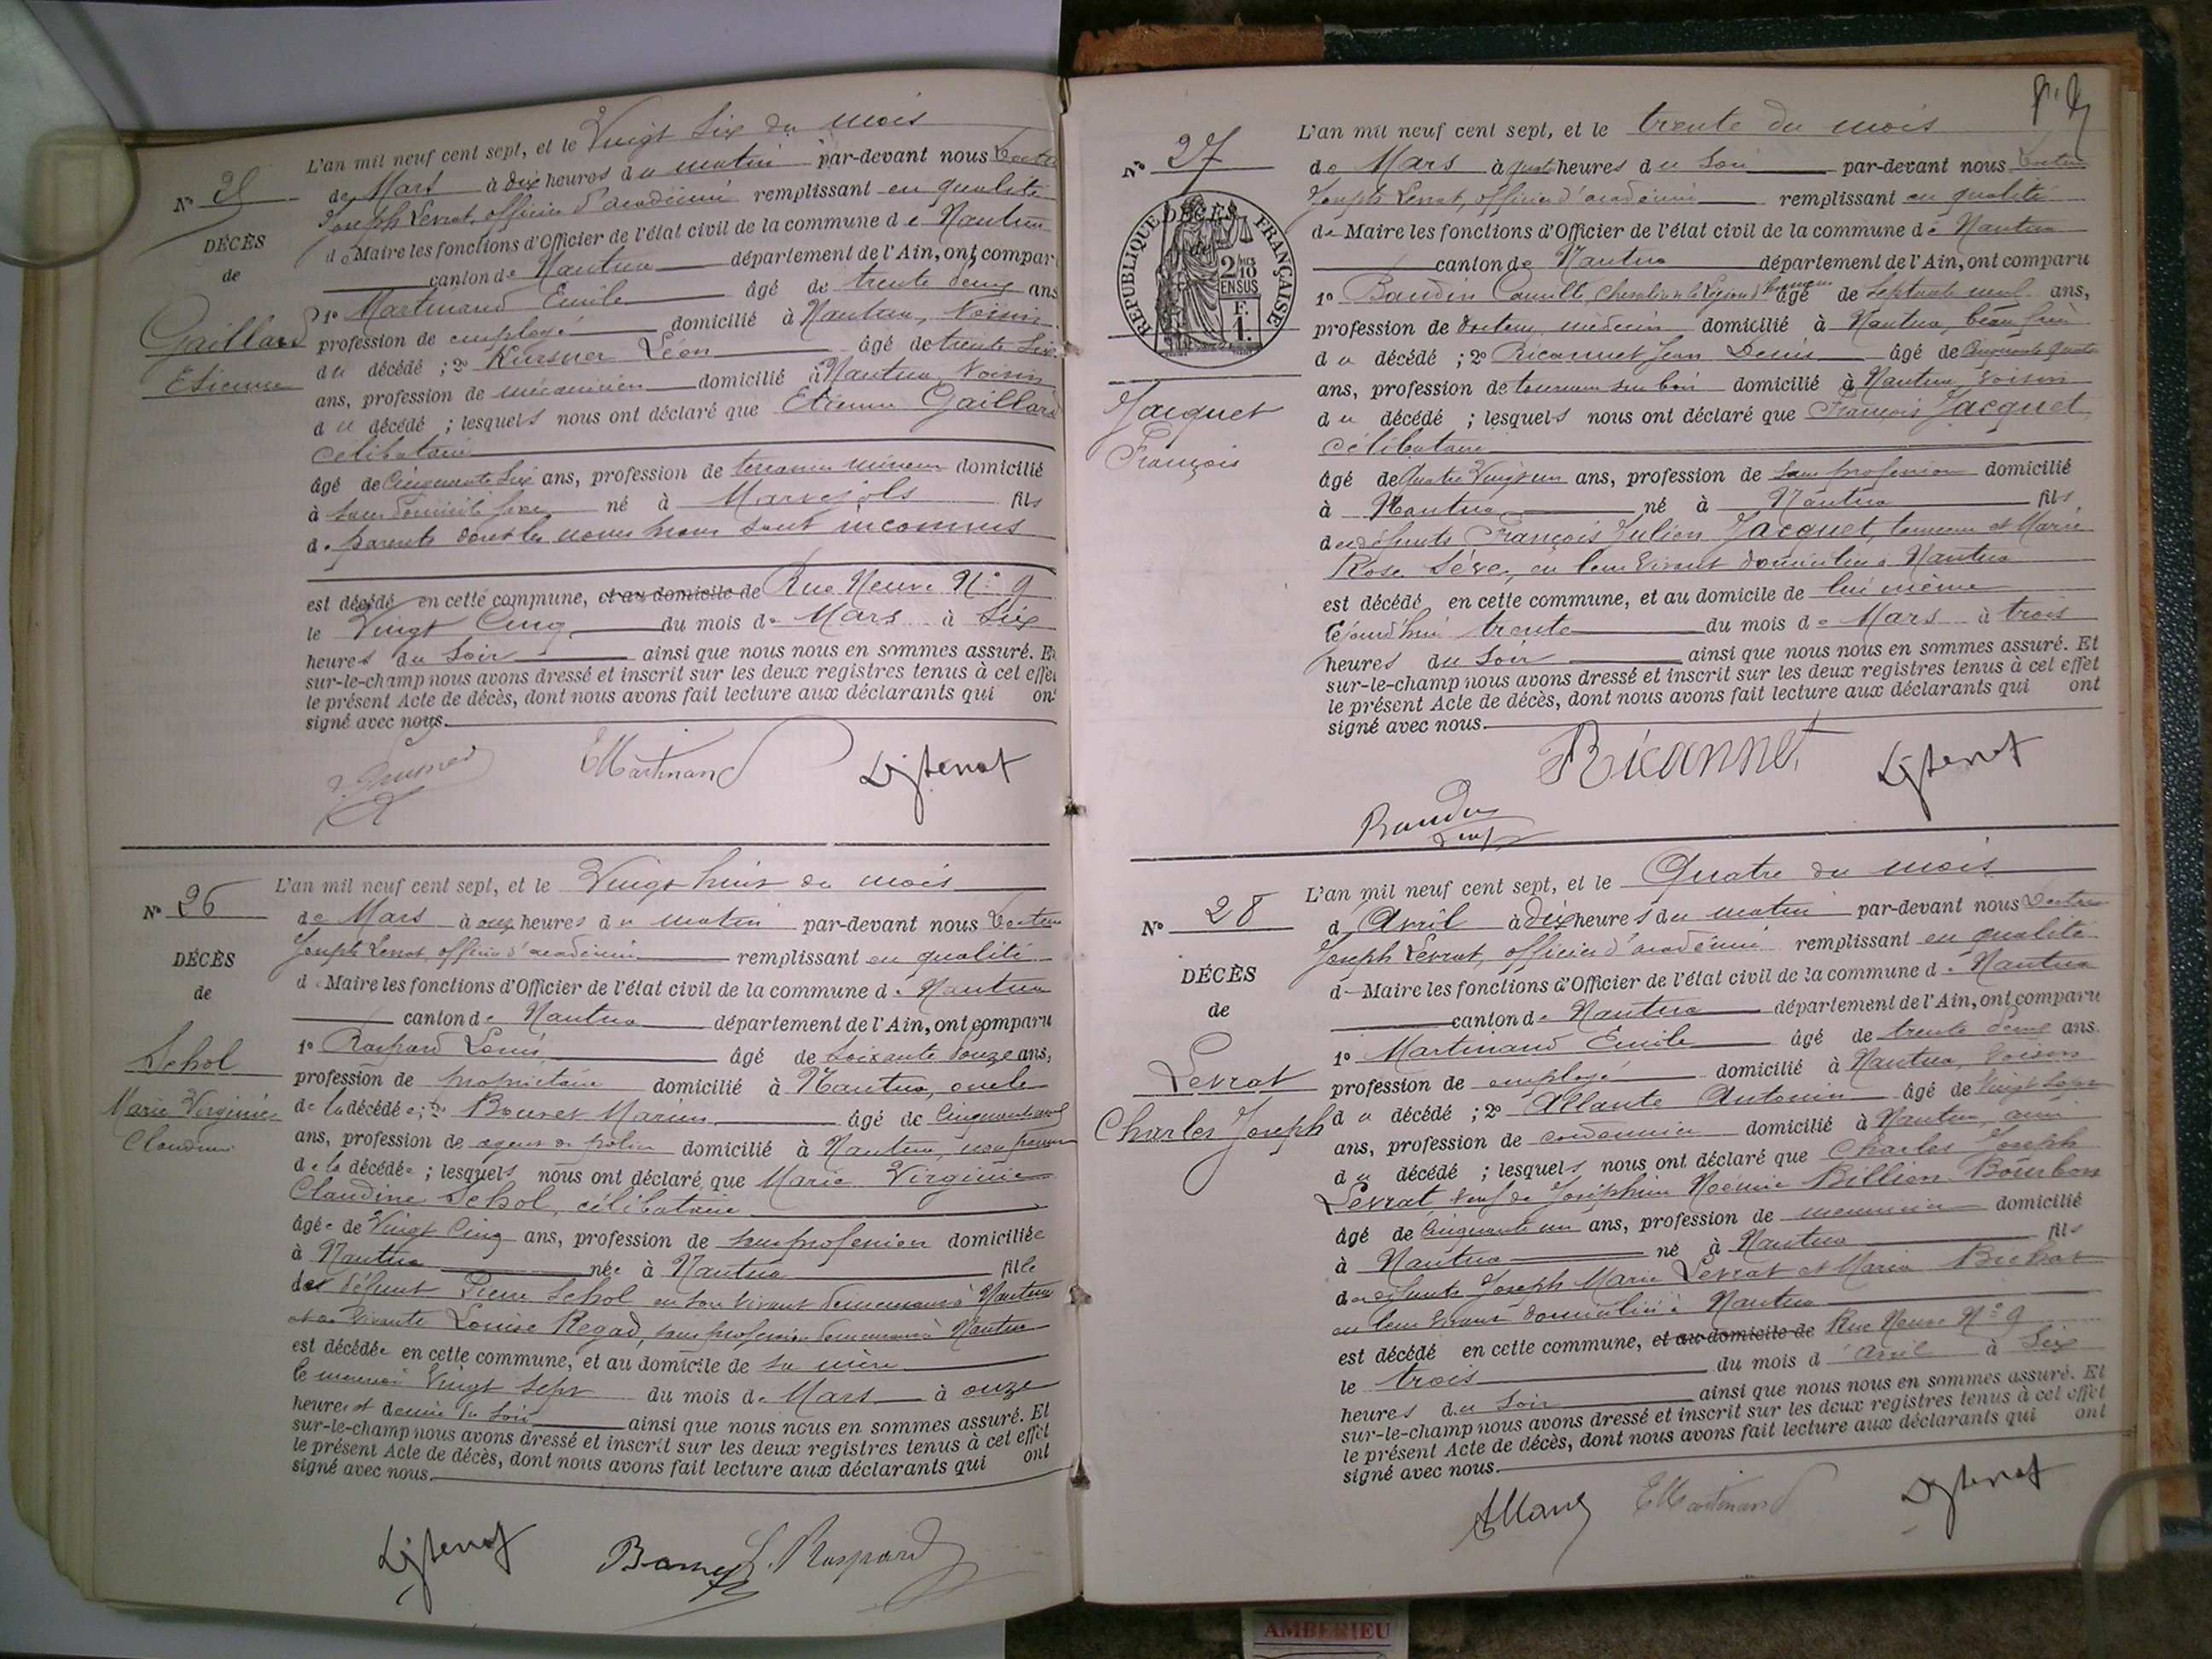 L'an mil neuf cent sept, et le Vingt Six du mois
de Mars à dix heures du matin par-devant nous Docteur
Joseph Levrat, officier d'académie remplissant en qualité
de Maire les fonctions d'Officier de l'état civil de la commune de Nantua
canton de Nantua département de l'Ain, ont compar
1º Martinand Emile âgé de trente deux ans
profession de employé domicilié à Nantua, Voisin
du décédé ; 2º Léon âgé de trente Six
ans, profession de mécanicien domicilié à Nantua Voisin
du décédé ; lesquels nous ont déclaré que Etienne Gaillard
célibataire
âgé de Cinquante Six ans, profession de terrassier mineur domicilié
à sans domicile fixe né à Marvejols fils
de parents dont les noms sont inconnus
est décédé en cette commune, et au domicile de Rue Neuve Nº 9
le Vingt Cinq du mois de Mars à Six
heures du Soir ainsi que nous nous en sommes assuré. Et
sur-le-champ nous avons dressé et inscrit sur les deux registres tenus à cet effet
le présent Acte de décès, dont nous avons fait lecture aux déclarants qui ont
signé avec nous.
Nº 25
DÉCÈS
de
Gaillard
Etienne
EMartinand
L'an mil neuf cent sept, et le Vingt huit du mois
de Mars à onze heures du matin par-devant nous Docteur
Joseph Levrat, officier d'académie remplissant en qualité
de Maire les fonctions d'Officier de l'état civil de la commune de Nantua
canton de Nantua département de l'Ain, ont comparu
1º Raspard Louis âgé de Soixante douze ans,
profession de propriétaire domicilié à Nantua, oncle
de la décédée ; 2º Marius âgé de
ans, profession de agent de police domicilié à Nantua, non parent
de la décédée ; lesquels nous ont déclaré que Marie Virginie
Claudine Schol, célibataire
âgée de Vingt Cinq ans, profession de sans profession domiciliée
à Nantua née à Nantua fille
de défunt Pierre Schol en son vivant demeurant à Nantua
et de vivante Louise Regad, sans profession demeurant à Nantua
est décédée en cette commune, et au domicile de sa mère
le Vingt Sept du mois de Mars à onze
heures et demie du Soir ainsi que nous nous en sommes assuré. Et
sur-le-champ nous avons dressé et inscrit sur les deux registres tenus à cet effet
le présent Acte de décès, dont nous avons fait lecture aux déclarants qui ont
signé avec nous.
Nº 26
DÉCÈS
de
Schol
Marie Virginie
Claudine
L. Raspard
L'an mil neuf cent sept, et le trente du mois
de Mars à quatre heures du Soir par-devant nous Docteur
Joseph Levrat, officier d'académie remplissant en qualité
de Maire les fonctions d'Officier de l'état civil de la commune de Nantua
canton de Nantua département de l'Ain, ont comparu
1º Baudin Camille, Chevalier de la légion d'honneur âgé de Septante neuf ans,
profession de docteur médecin domicilié à Nantua, beau frère
du décédé ; 2º Ricannet Jean Denis âgé de Cinquante quatre
ans, profession de tourneur sur bois domicilié à Nantua voisin
du décédé ; lesquels nous ont déclaré que François Jacquet
célibataire
âgé de Quatre Vingt un ans, profession de Sans profession domicilié
à Nantua né à Nantua fils
de défunts François Julien Jacquet, tourneur et Marie
Rose Sève, en leur vivant domiciliés à Nantua
est décédé en cette commune, et au domicile de lui même
le jourd'hui trente du mois de Mars à trois
heures du Soir ainsi que nous nous en sommes assuré. Et
sur-le-champ nous avons dressé et inscrit sur les deux registres tenus à cet effet
le présent Acte de décès, dont nous avons fait lecture aux déclarants qui ont
signé avec nous.
Nº 27
DÉCÈS
RÉPUBLIQUE FRANÇAISE
2/10 EN SUS
F.
1.
Jacquet
François
Ricannet
L'an mil neuf cent sept, et le Quatre du mois
d'Avril à Dix heures du matin par-devant nous Docteur
Joseph Levrat, officier d'académie remplissant en qualité
de Maire les fonctions d'Officier de l'état civil de la commune de Nantua
canton de Nantua département de l'Ain, ont comparu
1º Martinand Emile âgé de trente deux ans
profession de employé domicilié à Nantua, Voisin
du décédé ; 2º Allante Antonin âgé de Vingt Sept
ans, profession de cordonnier domicilié à Nantua, ami
du décédé ; lesquels nous ont déclaré que Charles Joseph
Levrat, veuf de Joséphine Noémie Billion Bourbon
âgé de Cinquante un ans, profession de menuisier domicilié
à Nantua né à Nantua fils
de défunts Joseph Marie Levrat et Marie
en leur vivant domiciliés à Nantua
est décédé en cette commune, et au domicile de Rue Neuve Nº 9
le trois du mois d'Avril à Six
heures du Soir ainsi que nous nous en sommes assuré. Et
sur-le-champ nous avons dressé et inscrit sur les deux registres tenus à cet effet
le présent Acte de décès, dont nous avons fait lecture aux déclarants qui ont
signé avec nous.
Nº 28
DÉCÈS
de
Levrat
Charles Joseph
EMartinand
AMBERIEU